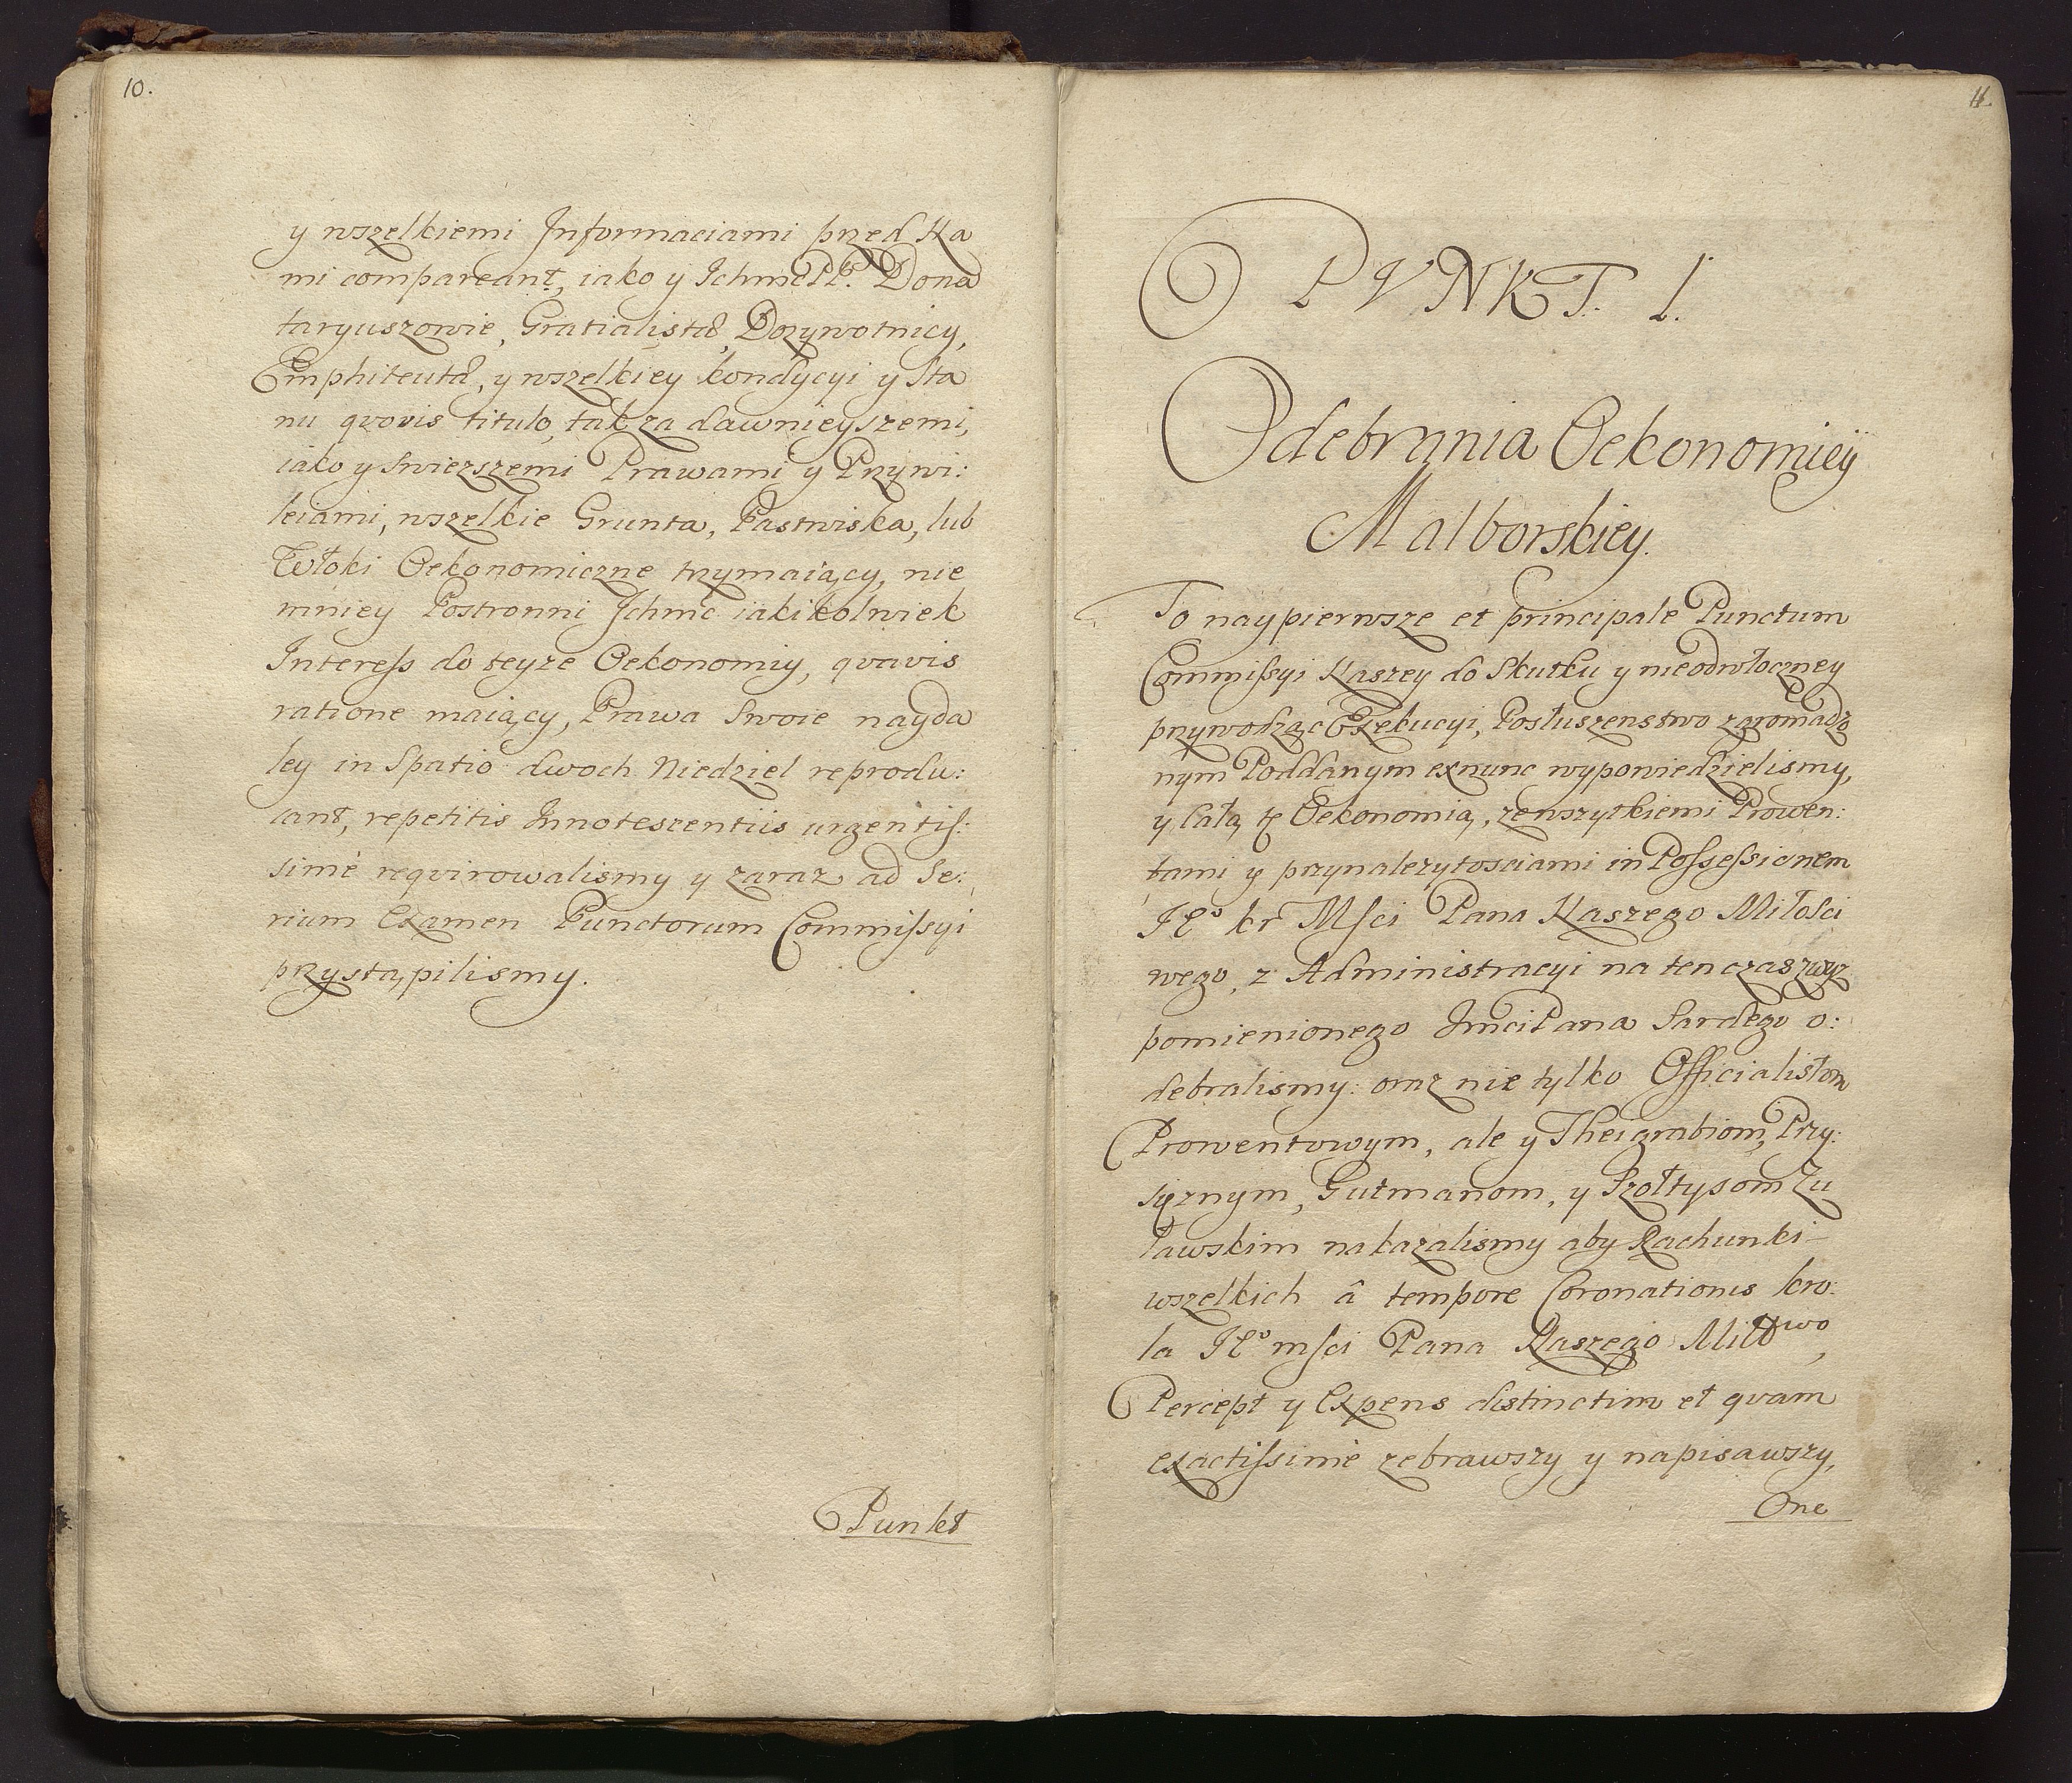 10.
y wszelkiemi Informaciami przed Na
mi compareant, iako y Ichmć PP. Dona
taryuszowie, Gratialistæ, Dozywotnicy,
Emphiteutæ, y wszelkiey kondycyi y Sta
nu qvovis titulo, tak za dawnieyszemi,
iako y swiezszemi Prawami y Przywi:
leiami, wszelkie Grunta, Pastwiska, lub
Włoki Oekonomiczne trzymaiący, nie
mniey Postronni Ichmć iakikolwiek
Interess do teyze Oekonomiy, qvavis
ratione maiący, Prawa Swoie nayda
ley in Spatio dwoch Niedziel reprodu:
cant, repetitis Innotescentiis urgentis:
simè reqvirowalismy y zaraz ad Se:
rium Examen Punctorum Commissyi
przystąpilismy.
Punkt
11.
PVNKT. I.
Odebrania Oekonomiey
Malborskiey.
To naypierwsze et principale Punctum
Commissyi Naszey do Skutku y nieodwłoczney
przywodząc Exekucyi, Posłuszenstwo zgromadzo
nym Poddanym exnunc wypowiedzielismy,
y całą tę Oekonomią, zewszytkiemi Prowen:
tami y przynalezytosciami in Possessionem
Jeº kr Msci Pana Naszego Miłosci
wego, z Administracyi na ten czas zwyz
pomienionego Jmci Pana Sardego o:
debralismy: oraz nie tylko Officialistom
Prowentowym, ale y Theigrabiom, Przy:
sięznym, Gutmanom, y Szołtysom Zu
ławskim nakazalismy aby Rachunki
wszelkich â tempore Coronationis kro:
la Jeº msci Pana Naszego Miłłwo,
Percept y Expens distinctim et qvam
exactissimè zebrawszy y napisawszy,
One